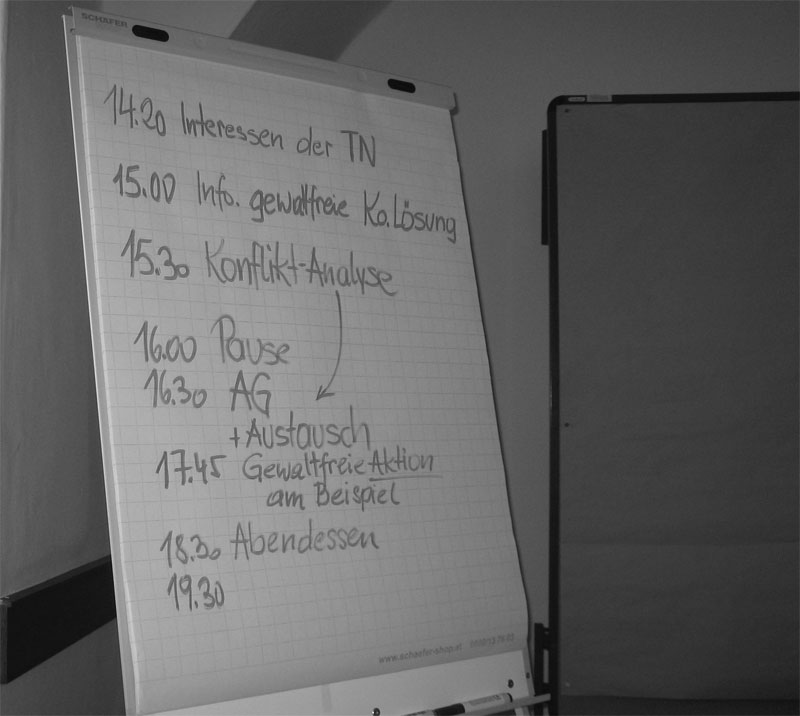 SCHÄFER
14.20 Interessen der TN
15.00 Info. gewaltfreie Ko.Lösung
15.30 Konflikt-Analyse
16.00 Pause
16.30 AG
+Austausch
17.45 Gewaltfreie Aktion
am Beispiel
18.30 Abendessen
19.30
www.schaefer-shop.at